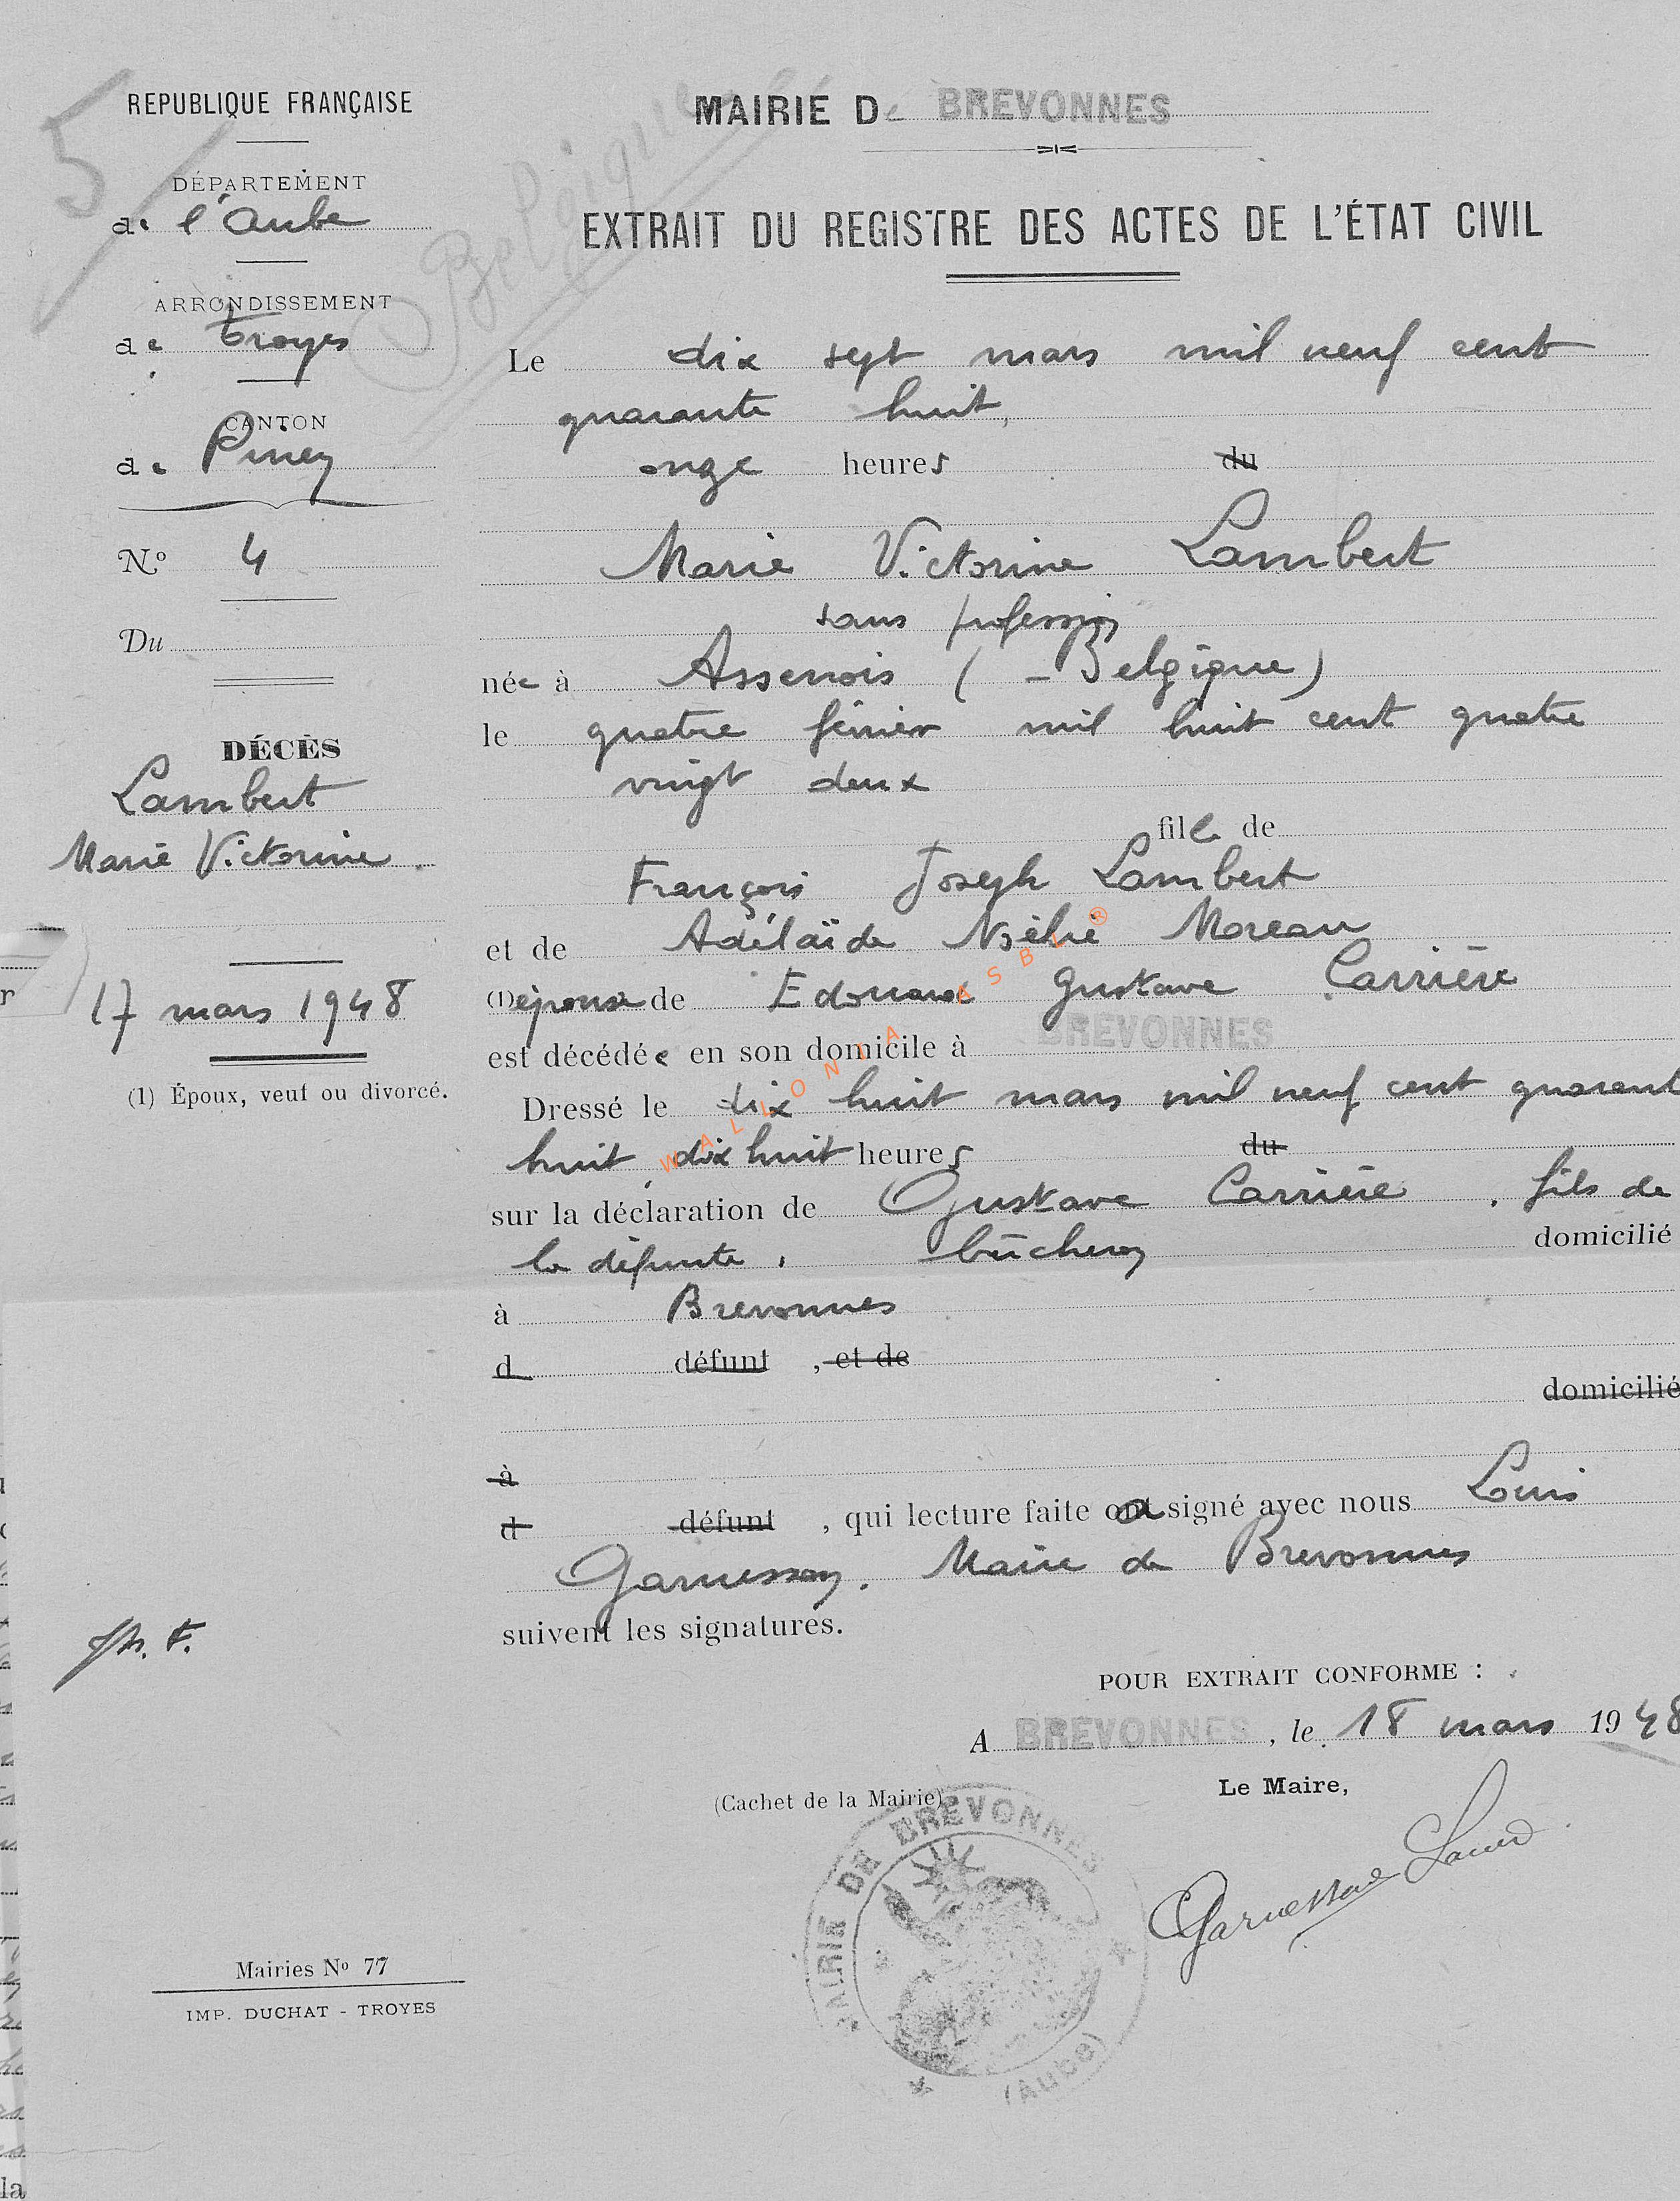 5
Belgique
REPUBLIQUE FRANÇAISE
DÉPARTEMENT
de l'Aube
ARRONDISSEMENT
de Troyes
CANTON
de Piney
No 4
Du
DÉCÈS
Lambert
Marie Victorine
17 mars 1948
(1) Époux, veuf ou divorcé.
MAIRIE De BREVONNES
EXTRAIT DU REGISTRE DES ACTES DE L'ÉTAT CIVIL
Le dix sept mars mil neuf cent
quarante huit,
onze heures du
Marie Victorine Lambert
sans profession
née à Assenois (Belgique)
le quatre février mil huit cent quatre
vingt deux
fille de
François Joseph Lambert
et de Adélaïde Noëlie Moreau
(1) épouse de Edouard Gustave Carrière
est décédée en son domicile à BREVONNES
Dressé le dix huit mars mil neuf cent quarante
huit, dix huit heures du
sur la déclaration de Gustave Carrière, fils de
la défunte, bûcheron domicilié
à Brevonnes
d défunt , et de
domicilié
à
d défunt , qui lecture faite a signé avec nous Louis
Garnesson, Maire de Brevonnes
suivent les signatures.
POUR EXTRAIT CONFORME :
A BREVONNES, le 18 mars 1948
(Cachet de la Mairie) Le Maire,
Garnesson Louis
MAIRIE DE BREVONNES
(Aube)
Mairies No 77
IMP. DUCHAT - TROYES
WALLONIA ASBL ®